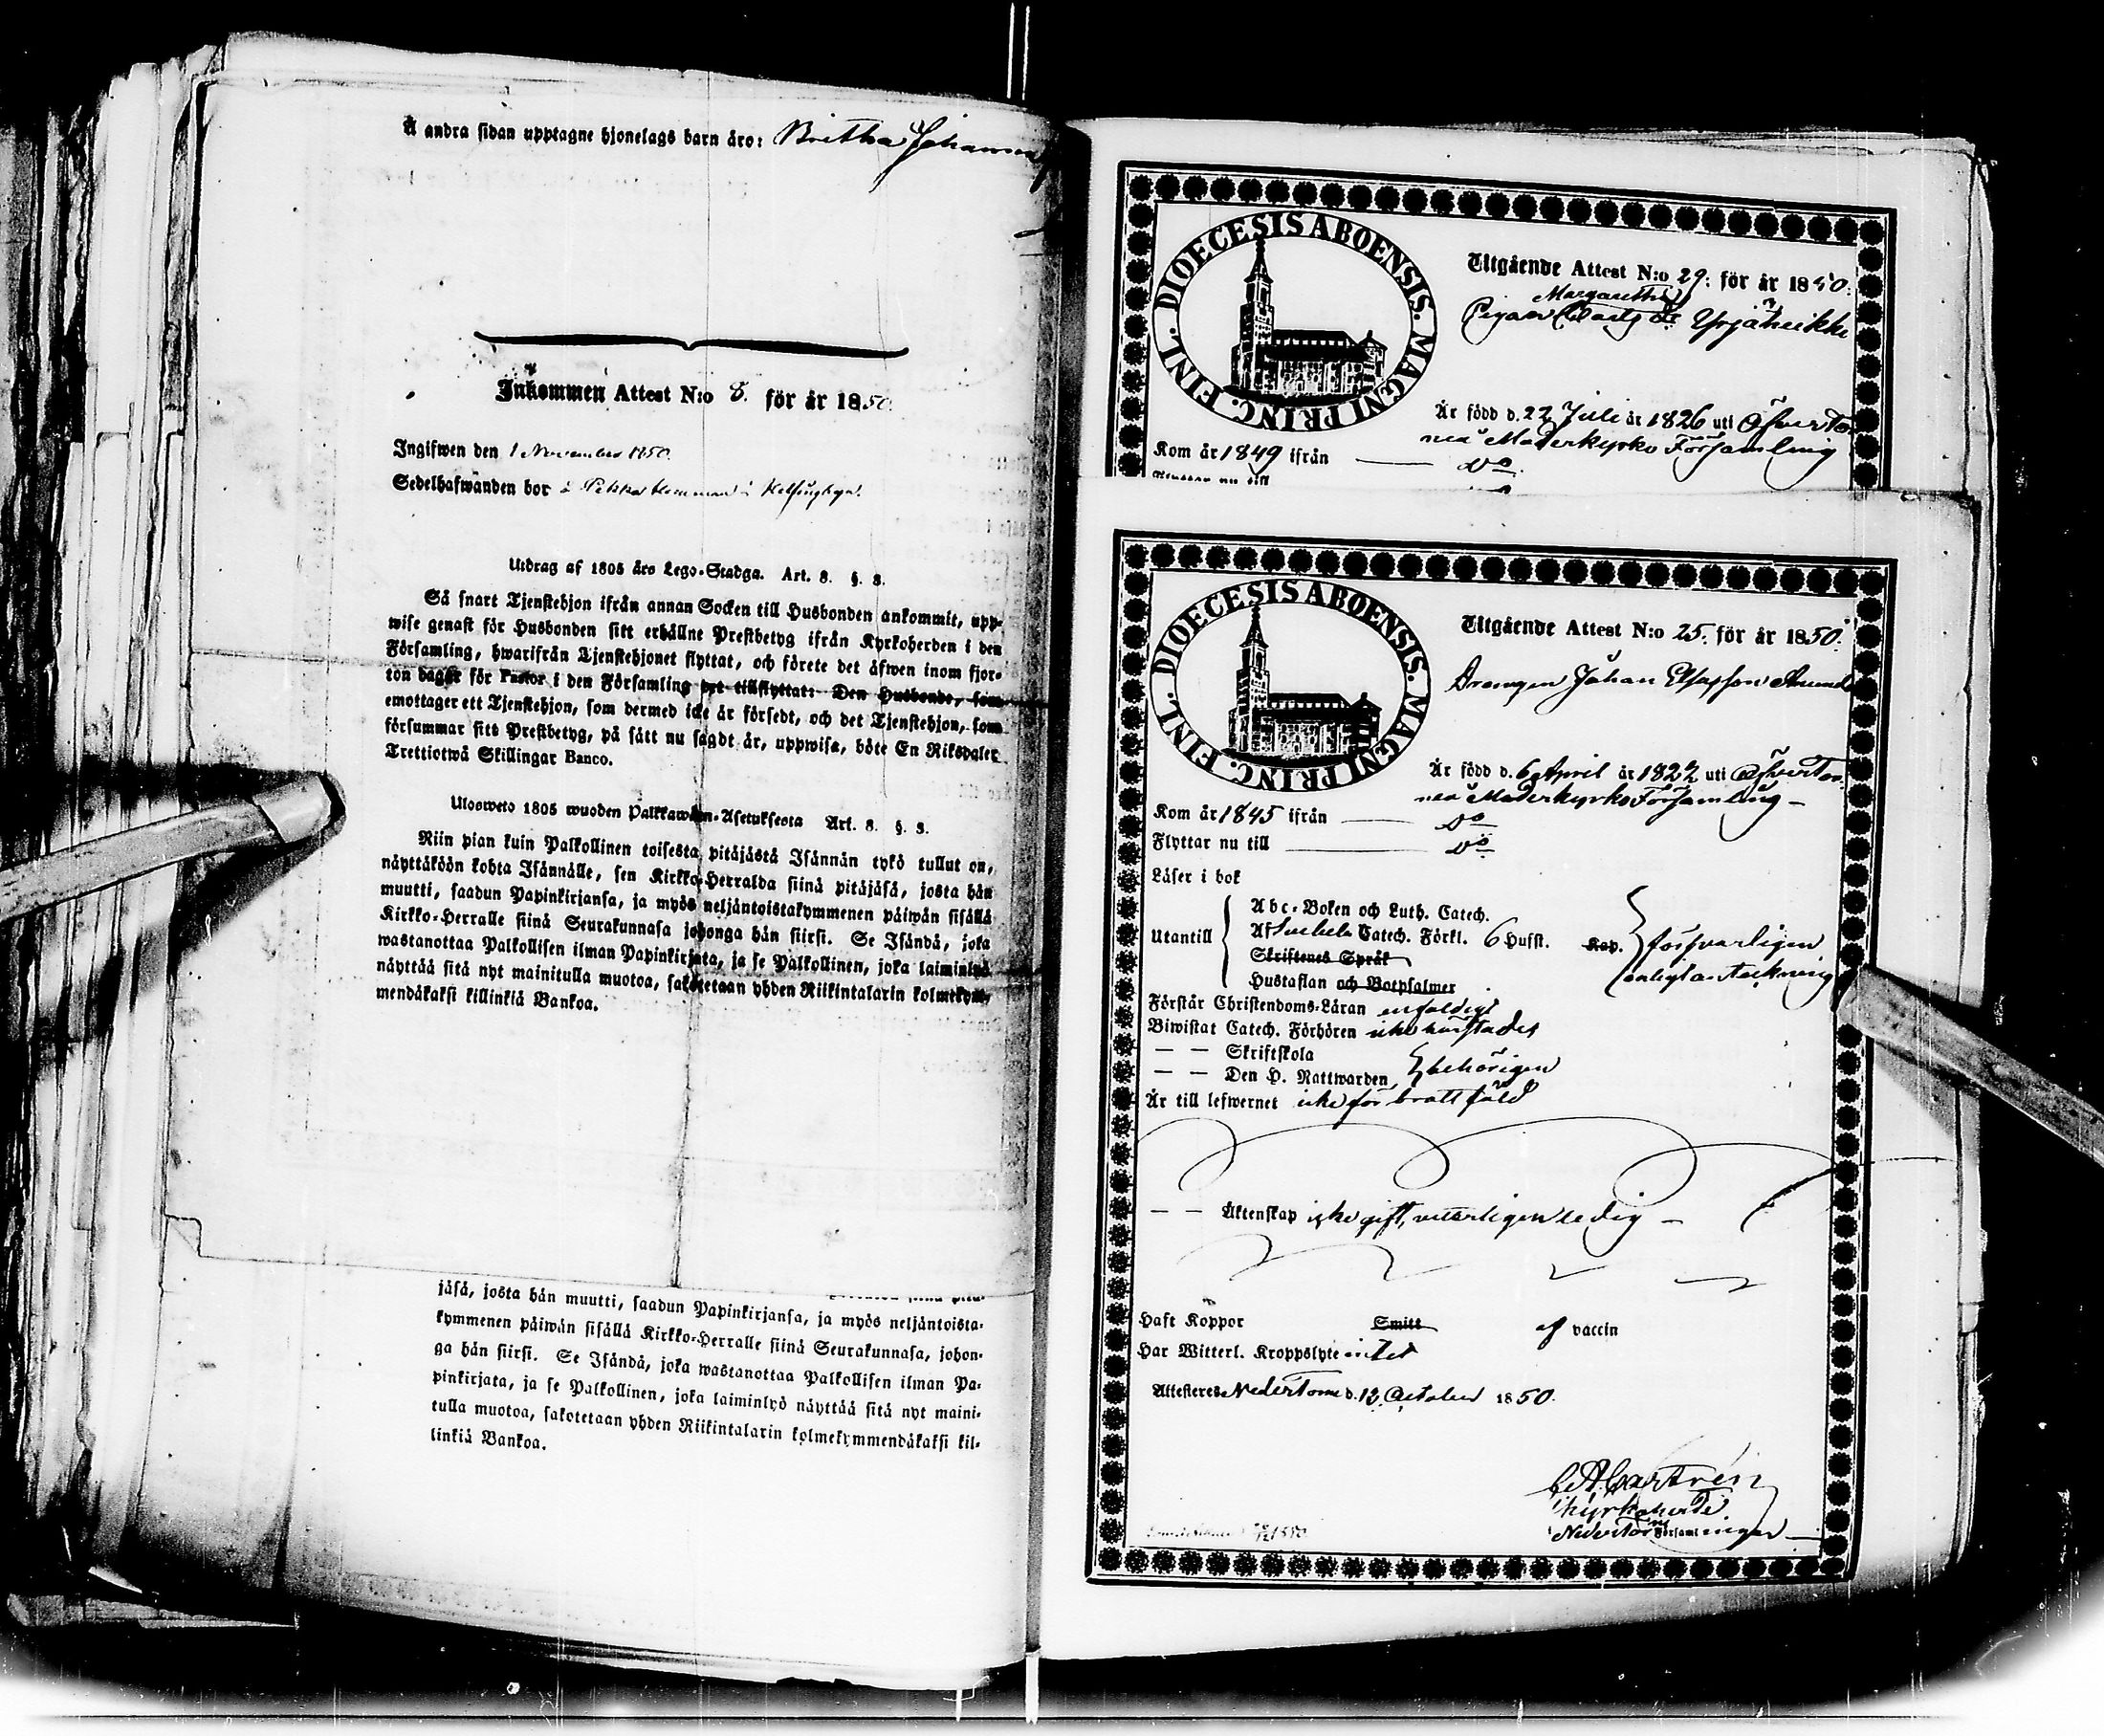 Å andra sidan upptagne hjonelags barn äro: Britha Johanna
Inkommen Attest N:o 8. för år 1850.
Ingifwen den 1 November 1850.
Sedelhafwanden bor å i Helsingbyn.
Utdrag af 1805 års Lego-Stadga. Art. 8. §. 3.
Så snart Tjenstehjon ifrån annan Socken till Husbonden ankommit, upp-
wise genast för Husbonden sitt erhållne Prestbetyg ifrån Kyrkoherden i den
Församling, hwarifrån Tjenstehjonet flyttat, och förete det äfwen inom fjor-
ton dagar för Pastor i den Församling det tillflyttat: Den Husbonde, som
emottager ett Tjenstehjon, som dermed icke är försedt, och det Tjenstehjon, som
försummar sitt Prestbetyg, på sätt nu sagdt är, uppwisa, böte En Riksdaler
Trettiotwå Skillingar Banco.
Ulosweto 1805 wuoden Palkkawäen-Asetuksesta Art. 8. §. 3.
Niin pian kuin Palkollinen toisesta pitäjästä Isännän tykö tullut on,
näyttäköön kohta Isännälle, sen Kirkko-Herralda siinä pitäjäsä, josta hän
muutti, saadun Papinkirjansa, ja myös neljäntoistakymmenen päiwän sisällä
Kirkko-Herralle siinä Seurakunnasa johonga hän siirsi. Se Isändä, joka
wastanottaa Palkollisen ilman Papinkirjata, ja se Palkollinen, joka laiminlyö
näyttää sitä nyt mainitulla muotoa, sakotetaan yhden Riikintalarin kolmekym-
mendäkaksi killinkiä Bankoa.
jäsä, josta hän muutti, saadun Papinkirjansa, ja myös neljäntoista-
kymmenen päiwän sisällä Kirkko-Herralle siinä Seurakunnasa, johon-
ga hän siirsi. Se Isändä, joka wastanottaa Palkollisen ilman Pa-
pinkirjata, ja se Palkollinen, joka laiminlyö näyttää sitä nyt maini-
tulla muotoa, sakotetaan yhden Riikintalarin kolmekymmendäkaksi kil-
linkiä Bankoa.
DIOECESIS ABOENSIS. MAGNI PRINC. FINL.
Utgående Attest N:o 29: för år 1850:
Margaretha
Pigan Yrjäheikki
Är född d. 22 Juli år 1826 uti Öfverto
neå Moderkyrko Församling
Kom år 1849 ifrån — Do
Flyttar nu till
DIOECESIS ABOENSIS. MAGNI PRINC. FINL.
Utgående Attest N:o 25. för år 1850:
Drengen Johan Ersson
Är född d. 6 April år 1822 uti Öfvertor
neå Moderkyrko Församling —
Kom år 1845 ifrån — Do
Flyttar nu till — Do
Läser i bok
Abc-Boken och Luth. Catech.
Utantill Af Svebelii Catech. Förkl. 6 Hufst. Kap. försvarligen
Skriftenes Språk enligt anteckning
Hustaflan och Botpsalmer
Förstår Christendoms-Läran enfaldigt
Biwistat Catech. Förhören icke
— — Skriftskola
— — Den H. Nattwarden behörigen
Är till lefwernet icke för brott fäld
— — Äktenskap icke gift, veterligen ledig —
Haft Koppor Smitt af vaccin
Har Witterl. Kroppslyte intet
Attesteres Nedertorne d. 12 October 1850.
C A Castrén
Kyrkoherde
Nedertorne Församlingar